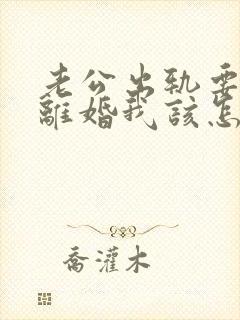 老公出轨要
離婚我該怎
喬灌木